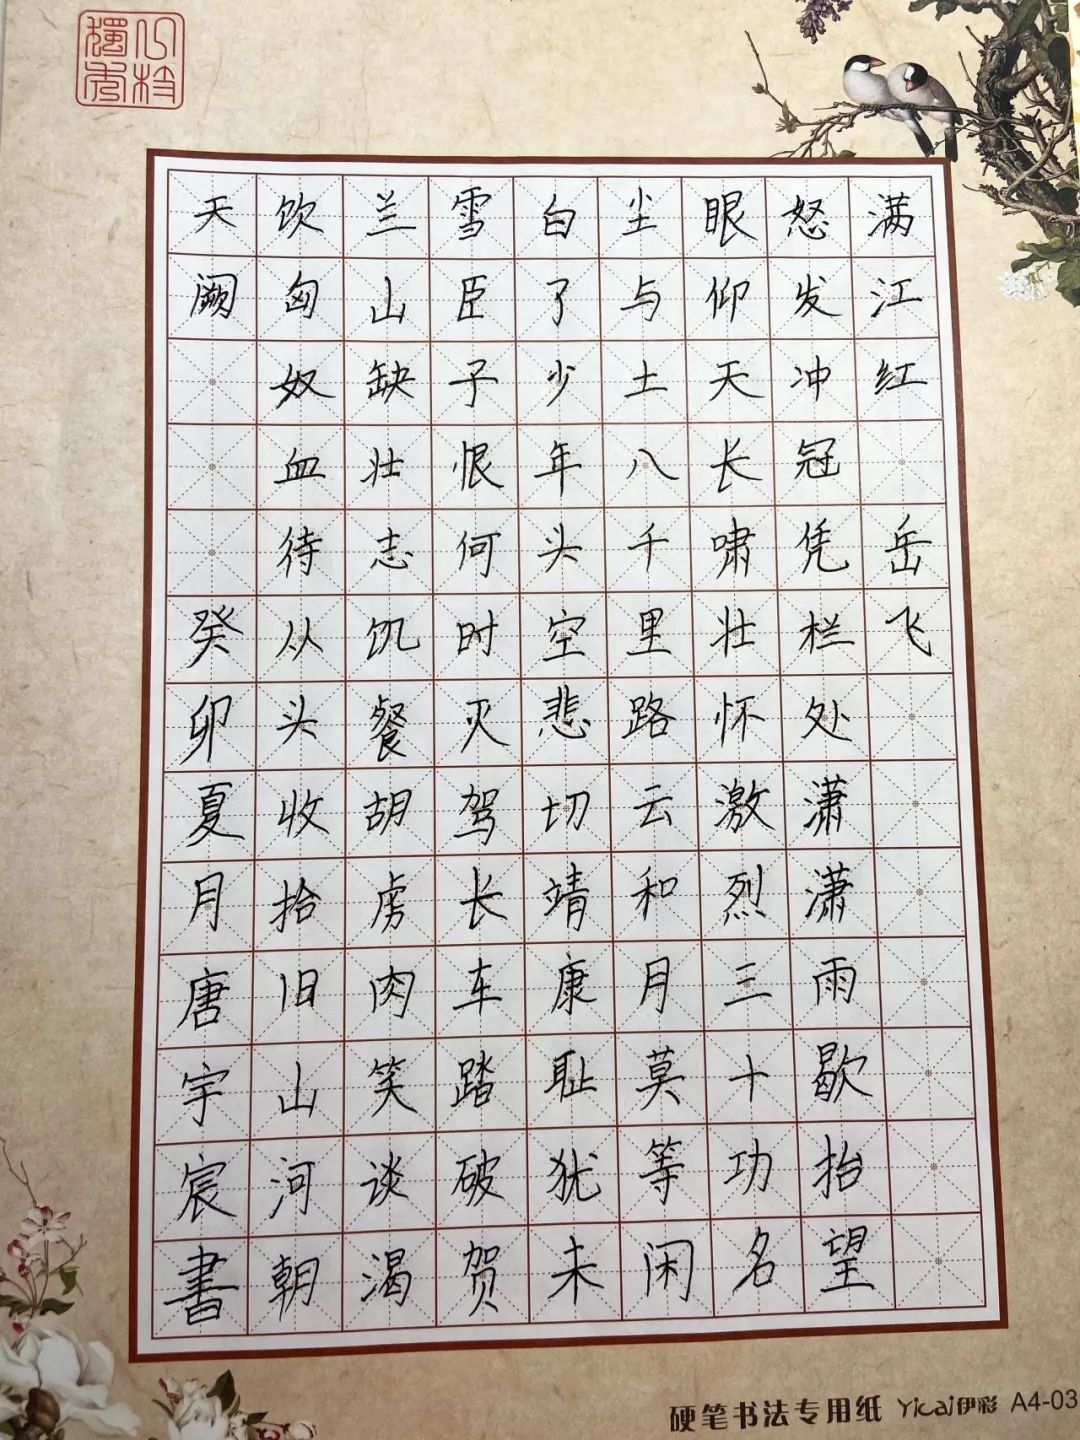 满江红 岳飞
怒发冲冠凭栏处潇潇雨歇抬望
眼仰天长啸壮怀激烈三十功名
尘与土八千里路云和月莫等闲
白了少年头空悲切靖康耻犹未
雪臣子恨何时灭驾长车踏破贺
兰山缺壮志饥餐胡虏肉笑谈渴
饮匈奴血待从头收拾旧山河朝
天阙 癸卯夏月唐宇宸書
硬笔书法专用纸 Yicai伊彩 A4-03